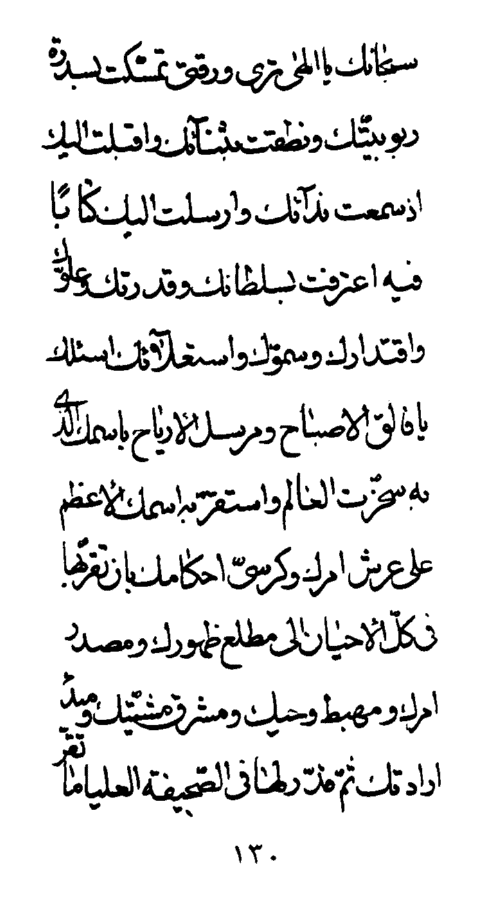 سبحانك يا الهي ترى ورقتي تمسّكت بسدرة
ربوبيّتك ونطقت بثنآئك واقبلت اليك
اذ سمعت ندآئك وارسلت اليك كتابًا
فيه اعترفت بسلطانك وقدرتك وعلوّك
واقتدارك وسموّك واستعلآئك اسئلك
يا فالق الاصباح ومرسل الارياح باسمك الّذي
به سخّرت العالم واستقرّ به اسمك الاعظم
على عرش امرك وكرسيّ احكامك بان تقرّبها
في كلّ الاحيان الى مطلع ظهورك ومصدر
امرك ومهبط وحيك ومشرق مشيّتك ومبدء
ارادتك ثمّ قدّر لها في الصّحيفة العليا ما تقرّ
١٣٠